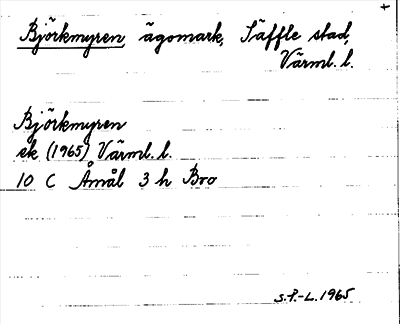 +
Björkmyren, ägomark, Säffle stad,
Värml. l.
Björkmyren
ek (1965) Värml. l.
10 C Åmål 3 h Bro
S.P.-L. 1965